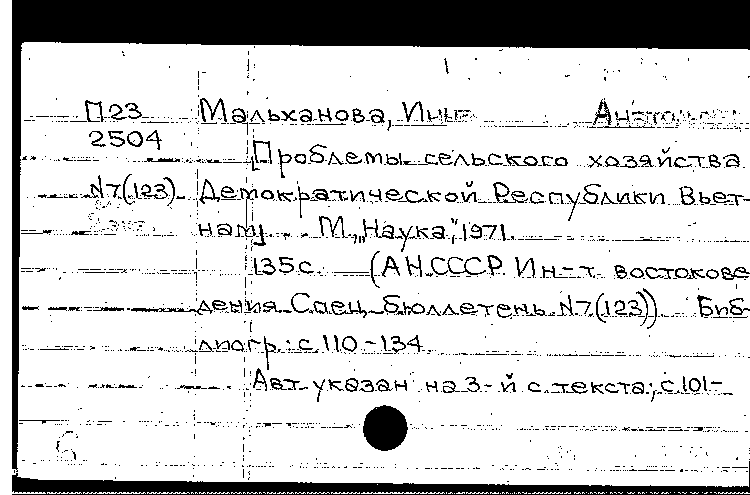 П23 Мальханова, Анатольевна
2504 Проблемы сельского хозяйства
N7(123) Демократической Республики Вьет-
наму. М., „Наука", 1971.
135с. (АН СССР. Ин-т востокове
дения. Спец. бюллетень N7(123)) Биб-
лиогр.: с. 110-134
Авт. указан на 3-й с. текста; с. 101-
6